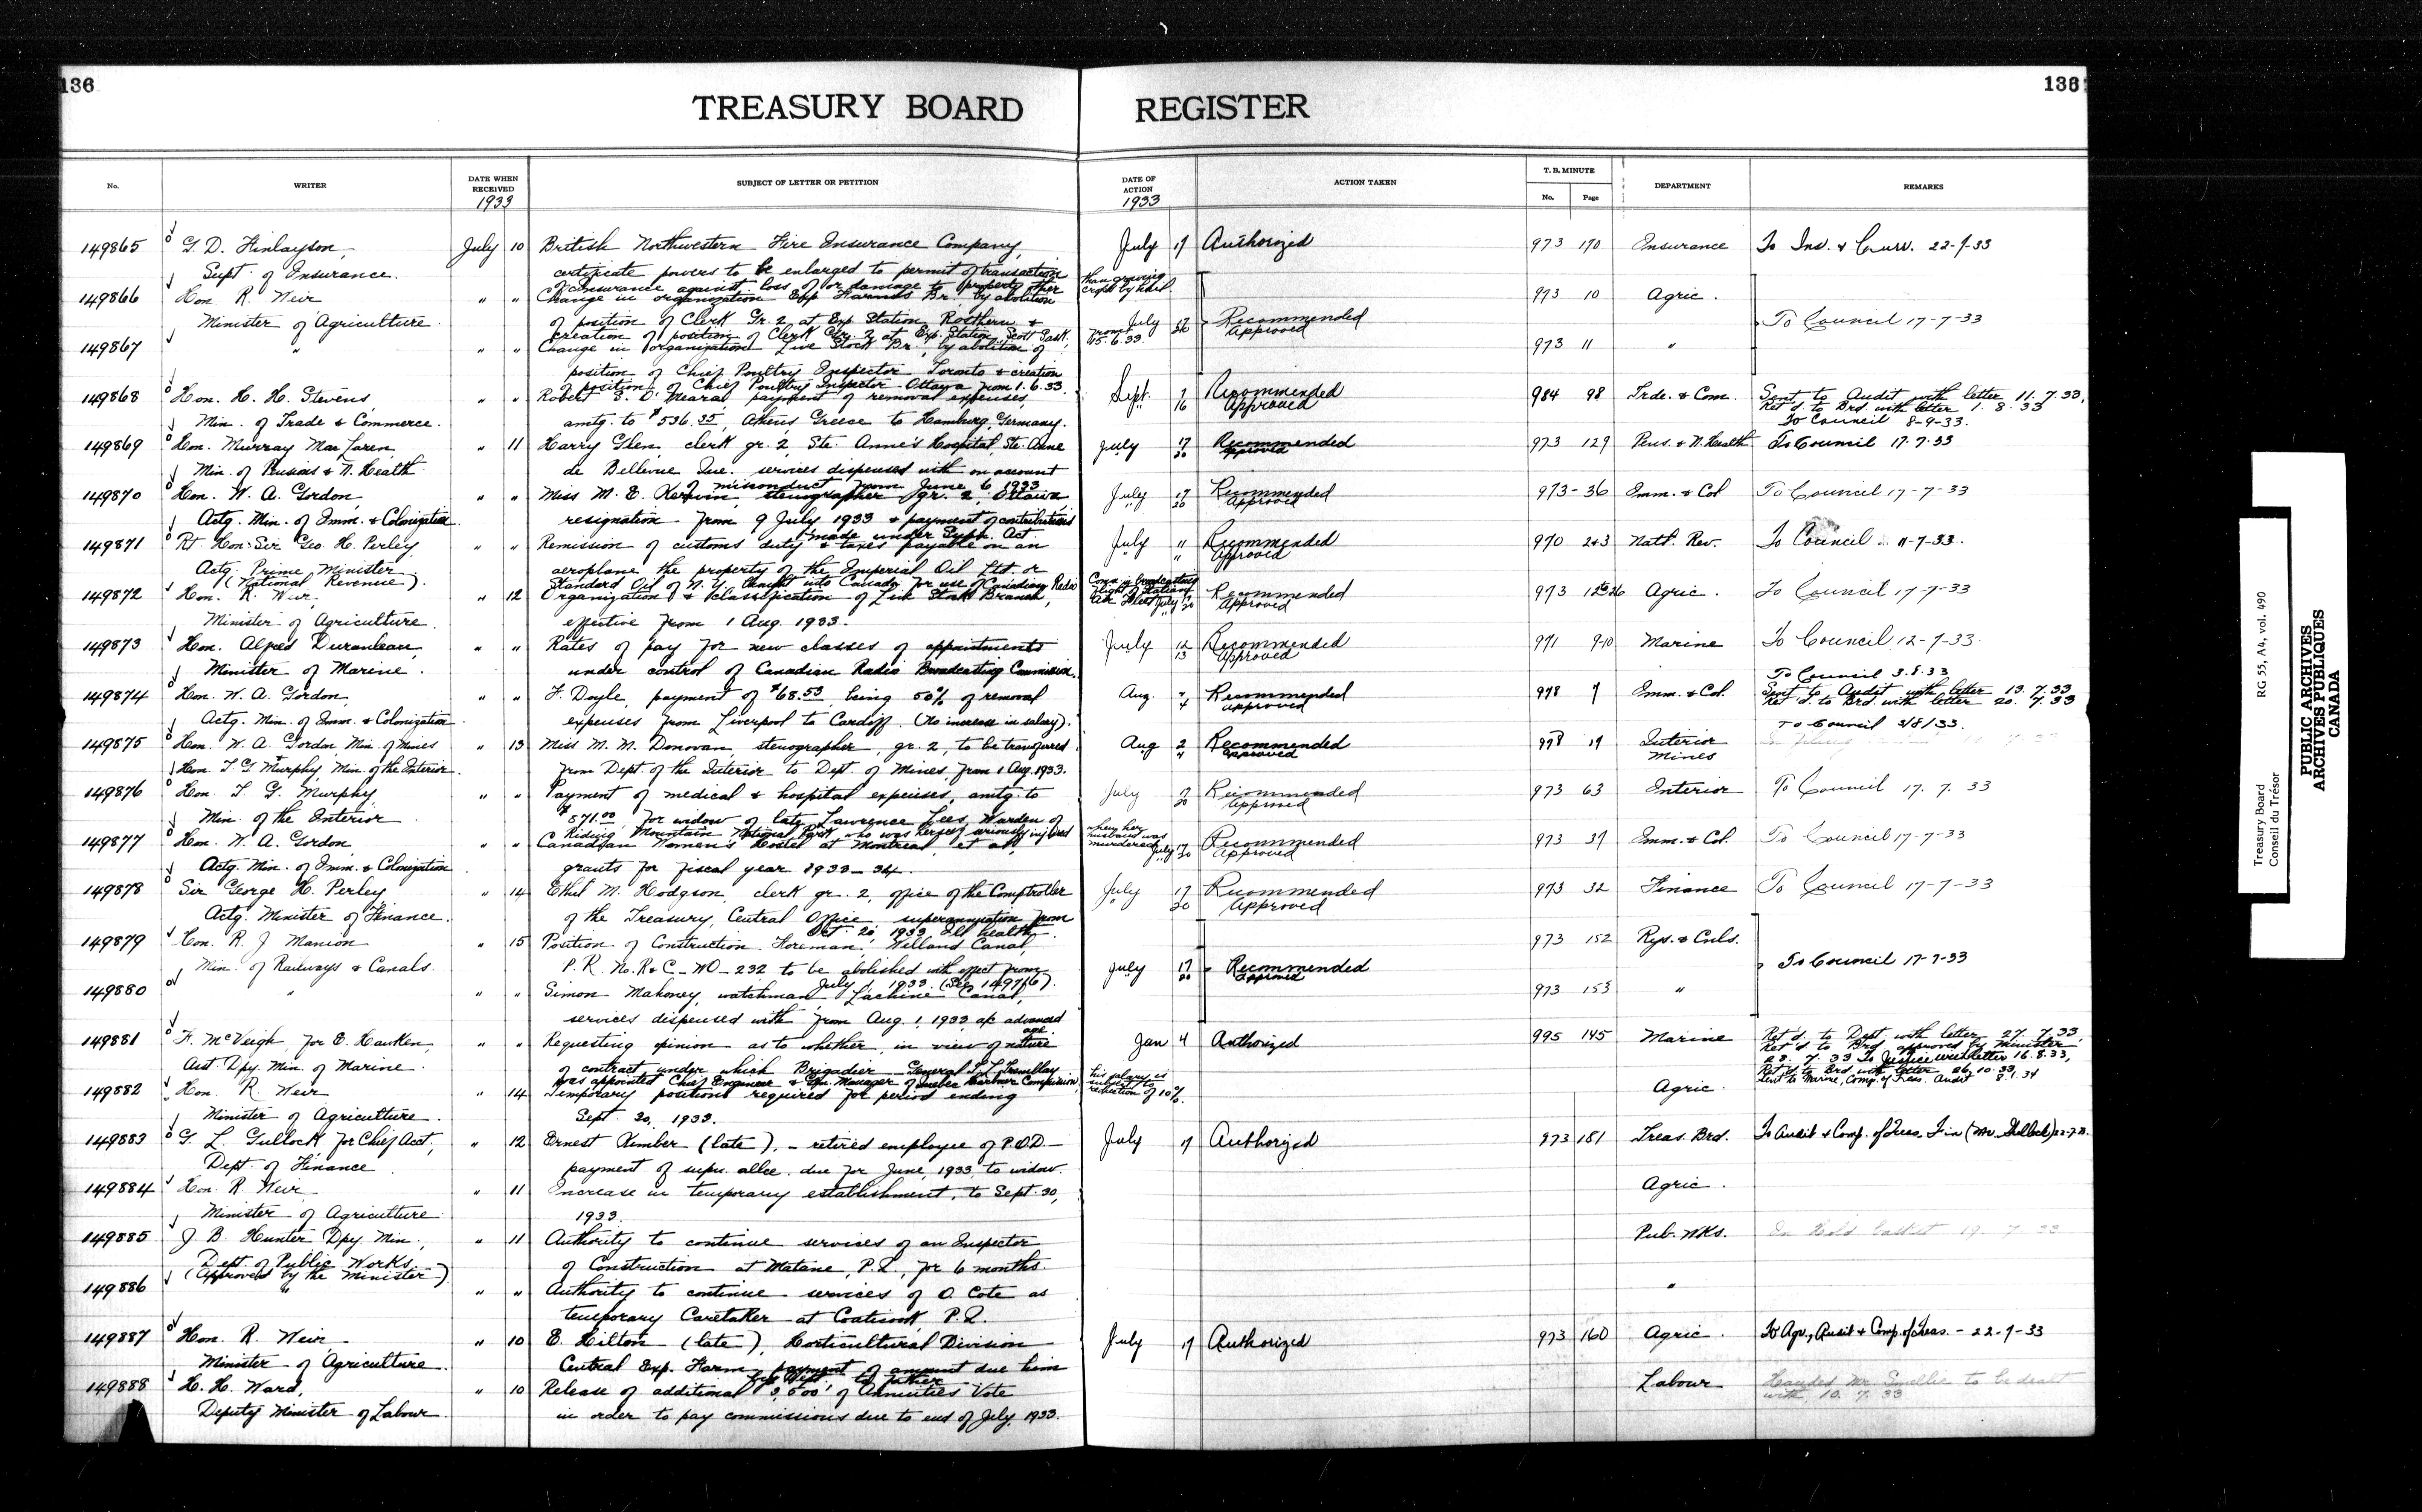 136
136
TREASURY BOARD REGISTER
No. WRITER DATE WHEN RECEIVED 1933 SUBJECT OF LETTER OR PETITION DATE OF ACTION 1933 ACTION TAKEN T. B. MINUTE No. Page DEPARTMENT REMARKS
149865 G. D. Finlayson, July 10 British Northwestern Fire Insurance Company, July 17 Authorized 973 170 Insurance To Ins. & Curr. 22-7-33
Supt. of Insurance. certificate powers to be enlarged to permit of transaction
of insurance against loss of or damage to property other than growing crops by hail.
149866 Hon. R. Weir " " Change in organization Exp. Farms Br. by abolition 973 10 Agric.
Minister of Agriculture. of position of Clerk Gr. 2 at Exp. Station Rosthern & July 17 Recommended To Council 17-7-33
creation of position of Clerk Gr. 2 at Exp. Station, Scott Sask. from 15.6.33. 20 Approved
149867 " " " Change in organization Live Stock Br., by abolition of 973 11 "
position of Chief Poultry Inspector Toronto & creation
of position of Chief Poultry Inspector Ottawa from 1.6.33.
149868 Hon. H. H. Stevens, " " Robert S. O'Meara, payment of removal expenses, Sept. 7 Recommended 984 98 Trde. & Com. Sent to Audit with letter 11.7.33,
" 16 Approved Ret'd. to Brd. with letter 1.8.33
Min. of Trade & Commerce. amtg. to $536.35, Athens Greece to Hamburg, Germany. To Council 8-9-33.
149869 Hon. Murray MacLaren, " 11 Harry Glen, clerk gr. 2, Ste. Anne's Hospital, Ste. Anne July 17 Recommended 973 129 Pens. & N. Health To Council 17-7-33
20 Approved
Min. of Pensions & N. Health de Bellevue Que. services dispensed with on account
of misconduct from June 6 1933
149870 Hon. W. A. Gordon, " " Miss M. E. Kerwin, stenographer gr. 2, Ottawa July 17 Recommended 973-36 Imm. & Col To Council 17-7-33
" 20 Approved
Actg. Min. of Imm. & Colonization resignation from 9 July 1933 & payment of contributions
made under Supn. Act.
149871 Rt. Hon. Sir Geo. H. Perley " " Remission of customs duty & taxes payable on an July 11 Recommended 970 243 Natl. Rev. To Council 11-7-33.
" " Approved
Actg. Prime Minister aeroplane the property of the Imperial Oil Ltd. or
(National Revenue). Standard Oil of N. Y. brought into Canada for use of Canadian Radio Comm. in broadcasting flight of Italian Air Fleet
149872 Hon. R. Weir, " 12 Organization & classification of Live Stock Branch, July 17 Recommended 973 Agric. To Council 17-7-33
" 20 Approved
Minister of Agriculture. effective from 1 Aug. 1933.
149873 Hon. Alfred Duranleau, " " Rates of pay for new classes of appointments July 12 Recommended 971 9-10 Marine To Council 12-7-33
" 13 Approved
Minister of Marine. under control of Canadian Radio Broadcasting Commission.
To Council 3.8.33
149874 Hon. W. A. Gordon, " " F. Doyle, payment of $68.53, being 50% of removal Aug. Recommended 978 7 Imm. & Col. Sent to Audit with letter 13.7.33
4 Approved Ret'd. to Brd. with letter 20.7.33
Actg. Min. of Imm. & Colonization. expenses from Liverpool to Cardiff. (No increase in salary).
To Council 3/8/33.
149875 Hon. W. A. Gordon Min. of Mines " 13 Miss M. M. Donovan, stenographer, gr. 2, to be transferred Aug 2 Recommended 978 19 Interior
" 4 Approved Mines
& Hon. T. G. Murphy, Min. of the Interior. from Dept. of the Interior to Dept. of Mines, from 1 Aug. 1933.
149876 Hon. T. G. Murphy " " Payment of medical & hospital expenses, amtg. to July 17 Recommended 973 63 Interior To Council 17.7.33
20 Approved
Min. of the Interior $571.00 for widow of late Lawrence Lees, Warden of
Riding Mountain National Park, who was herself seriously injured when her husband was murdered.
149877 Hon. W. A. Gordon, " " Canadian Women's Hostel at Montreal, et al, July 17 Recommended 973 37 Imm. & Col. To Council 17-7-33
" 20 Approved
Actg. Min. of Imm. & Colonization grants for fiscal year 1933-34.
149878 Sir George H. Perley " 14 Ethel M. Hodgson, clerk gr. 2, office of the Comptroller July 17 Recommended 973 32 Finance To Council 17-7-33
" 20 Approved
Actg. Minister of Finance. of the Treasury, Central Office, superannuation from
Oct. 20 1933. Ill health.
149879 Hon. R. J. Manion " 15 Position of Construction Foreman, Welland Canal, 973 152 Rys. & Cnls.
Min. of Railways & Canals. P. R. No. R & C-WO-232 to be abolished with effect from July 17 Recommended To Council 17-7-33
July 1, 1933. (See 149766). 20 Approved
149880 " " " Simon Mahoney, watchman, Lachine Canal, 973 153 "
services dispensed with from Aug. 1, 1933 a/c advanced age.
149881 F. McVeigh, for E. Hawken, " " Requesting opinion as to whether, in view of nature Jan 4 Authorized 995 145 Marine Ret'd. to Dept. with letter 27.7.33,
Ret'd. to Brd. approved by Minister
Asst. Dpy. Min. of Marine. of contract under which Brigadier General T. L. Tremblay 28.7.33 To Justice with letter 16.8.33,
was appointed Chief Engineer & Gen. Manager of Quebec Harbour Commission, his salary is subject to reduction of 10%. Ret'd to Brd. with letter 26.10.33
Sent to Marine, Comp. of Treas. Audit 8.1.34
149882 Hon. R. Weir " 14 Temporary positions required for period ending Agric.
Minister of Agriculture. Sept. 30, 1933.
149883 G. L. Gullock for Chief Acct, " 12 Ernest Kimber (late), - retired employee of P.O.D.- July 17 Authorized 973 181 Treas. Brd. To Audit & Comp. of Treas. Fin (Mr. Gullock) 22-7-33.
Dept. of Finance payment of supn. allce. due for June, 1933, to widow.
149884 Hon. R. Weir " 11 Increase in temporary establishment, to Sept. 30, Agric.
Minister of Agriculture 1933.
149885 J. B. Hunter Dpy. Min., " 11 Authority to continue services of an Inspector Pub. Wks.
Dept. of Public Works. of Construction at Matane, P.Q., for 6 months
(Approved by the Minister)
149886 " " " Authority to continue services of O. Cote as "
temporary Caretaker at Coaticook P.Q.
149887 Hon. R. Weir " 10 E. Hilton (late), Horticultural Division July 17 Authorized 973 160 Agric. To Agr., Audit & Comp. of Treas. - 22-7-33
Minister of Agriculture Central Exp. Farm, payment of amount due him
by Dept. to father
149888 H. H. Ward, " 10 Release of additional $3,500 of Annuities Vote Labour Handed Mr. Smellie to be dealt
with 10.7.33
Deputy Minister of Labour in order to pay commissions due to end of July, 1933.
Treasury Board
Conseil du Trésor
RG 55, A4, vol. 490
PUBLIC ARCHIVES
ARCHIVES PUBLIQUES
CANADA